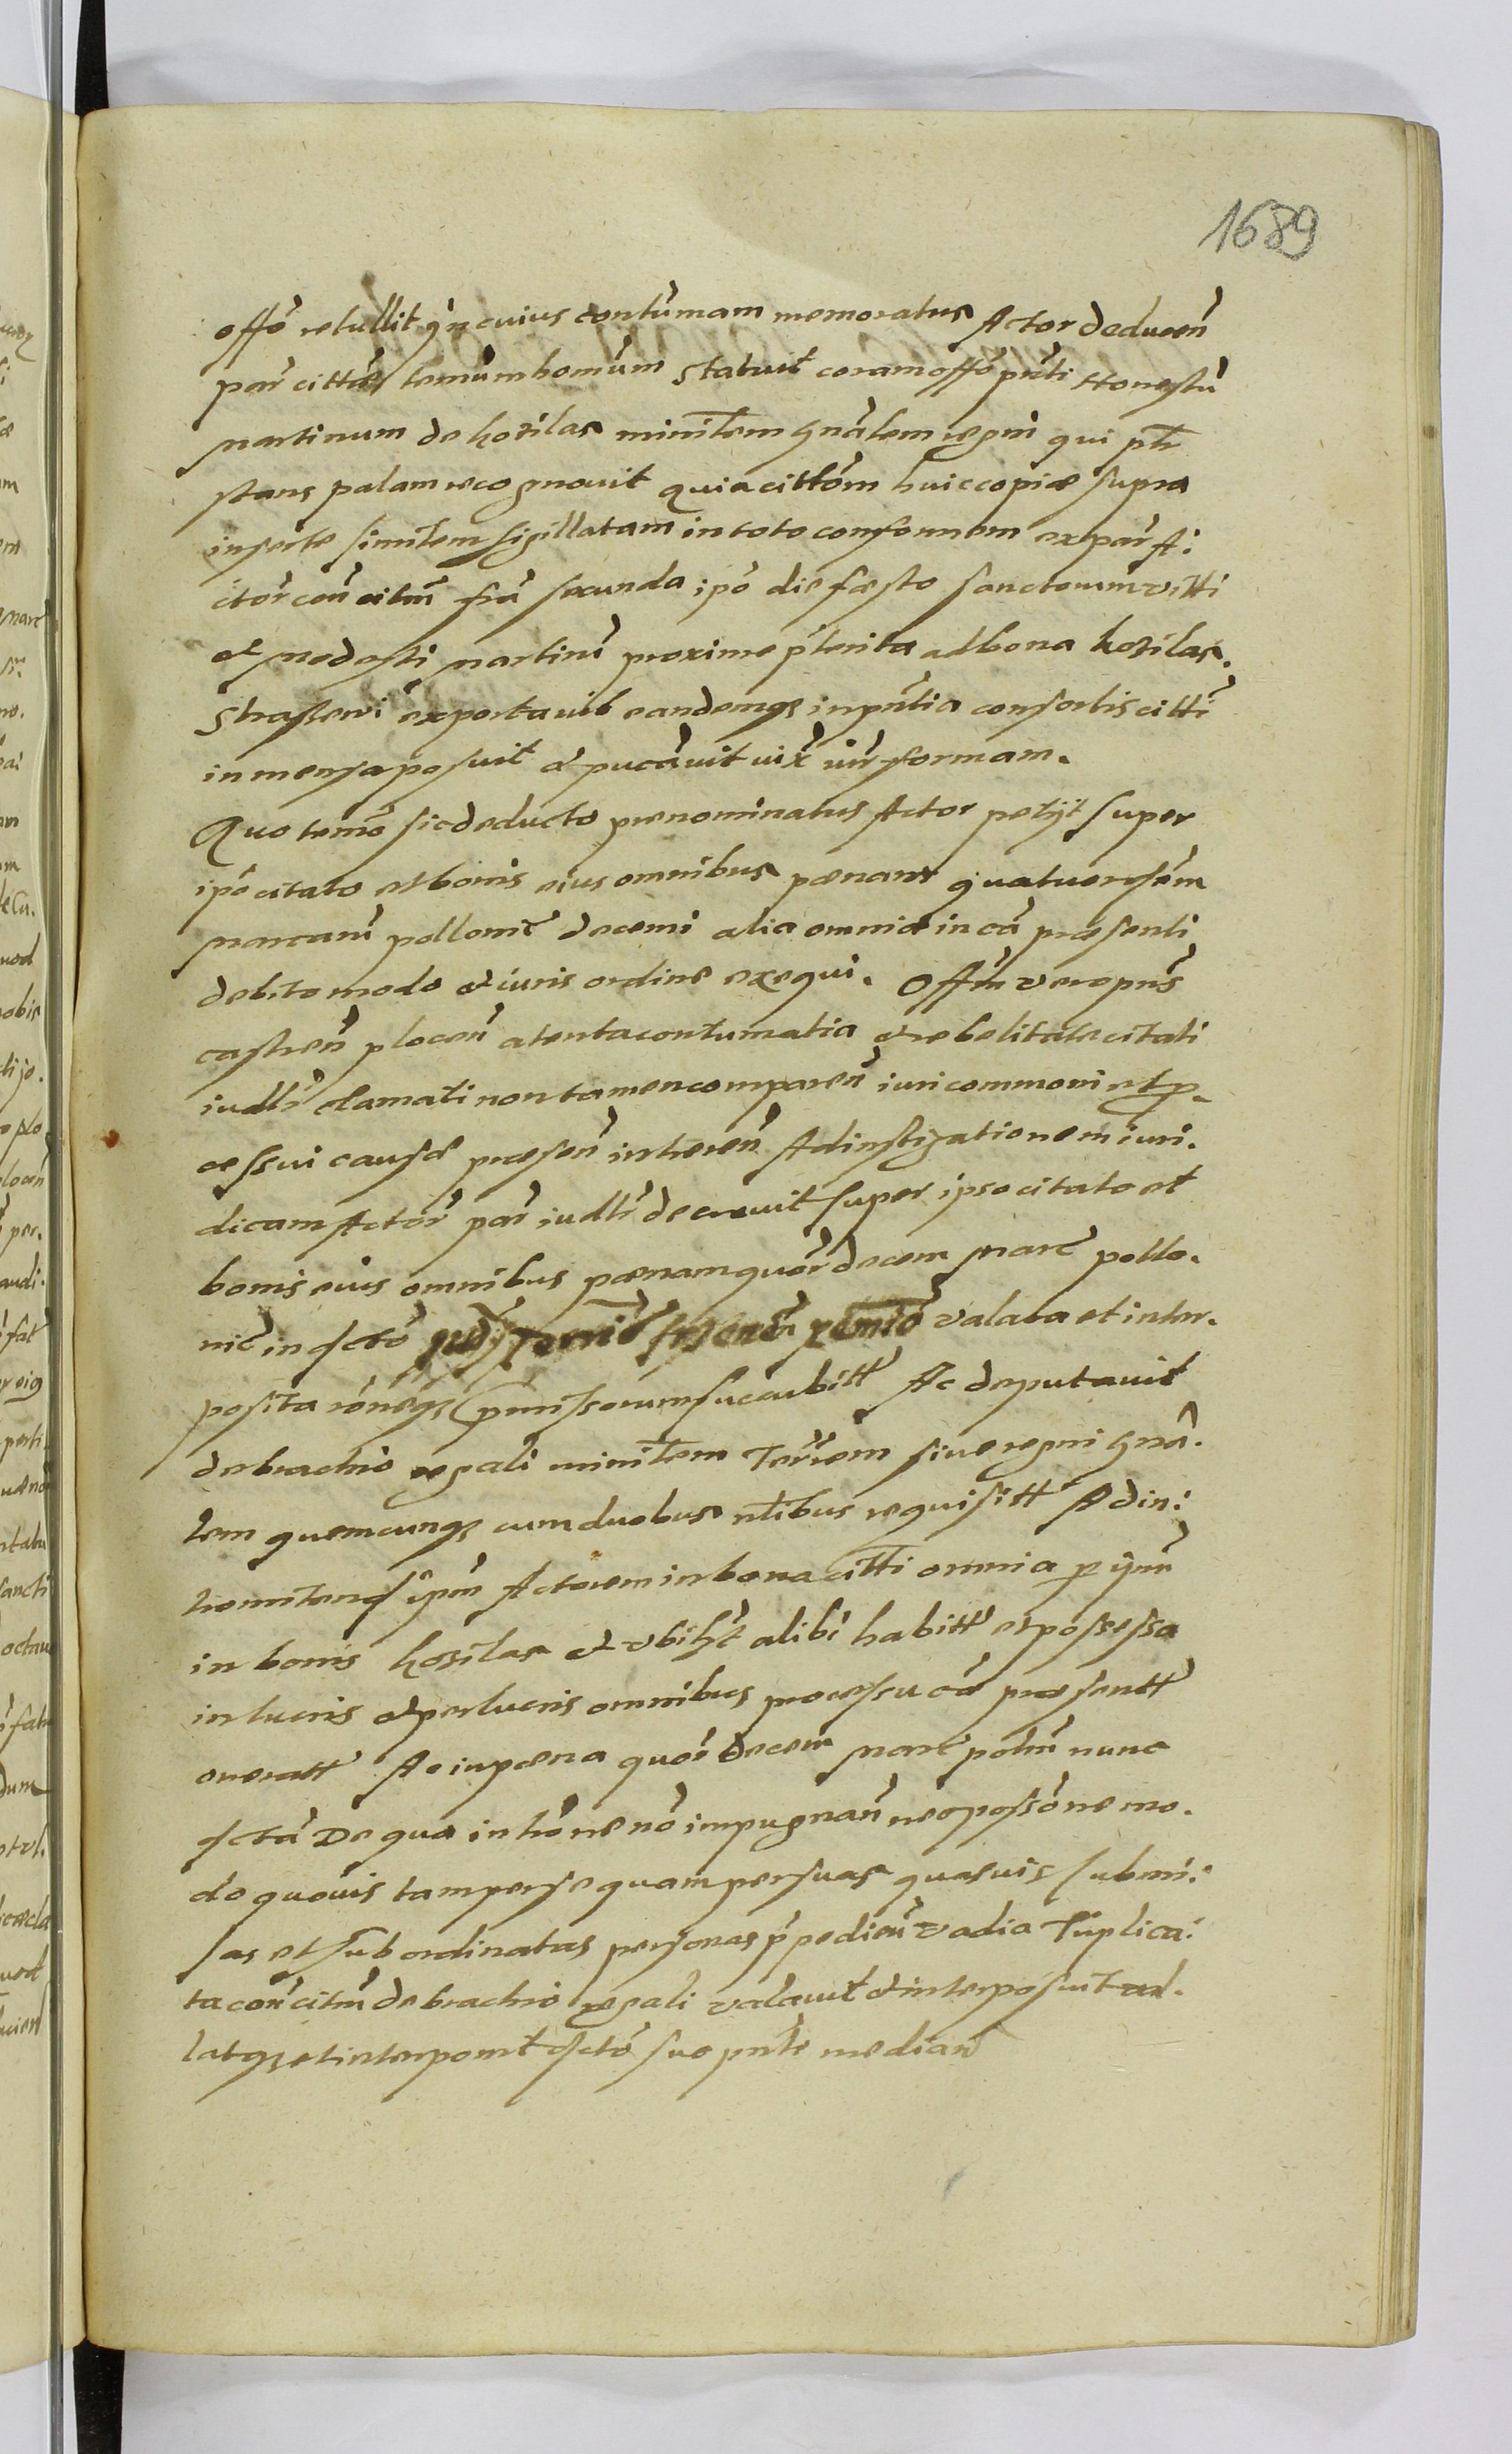 1689
offō retullit q̄n cuius contūmam memoratus Actor deducen̄
par̄ cittūs temūm homūm statuit coram offō pn̄ti Honestū
Martinum de kozilas minr̄lem gn̄alem regni qui pn̄s
stans palam recognovit Quia cittōm huic copiæ supra
inserte similem sigillatam in toto conformem ex par̄ A:
ctor̄ con̄ citm̄ fr̄a secunda ipō die festo sanctorum vitti
et modesti martirū proxime p̄terita ad bona kozilas.
strasseui exportavit eandemq inpn̄tia consortis citti
in mensa posuit et pucāvit uix̄ iūr formam.
Quo temō sic deducto prenominatus Actor petyt super
ipō citato et bonis eius omnibus pœnam quatuordem̄
marcarū pollonic̄ decerni alia omnia in cā præsenti
debito modo et iuris ordine exequi. Offm̄ vero pns̄
castren̄ plocen̄ atenta contumatia et rebelitate citati
iudlr̄ clamati non tamen comparen̄ iuri communi et p-
cessui causæ præsen̄ inheren̄ Ad instigationem iuri.
dicam Actor̄ par̄ iudlr̄ decrevit super ipso citato et
bonis eius omnibus pœnam quor̄ decem marc̄ pollo.
nic̄ in dctō valata et inter.
posita rōneq pmissorum succubitt̄ Ac deputavit
de brachio regali minr̄lem Terr̄em sive regni gn̄a.
lem quemcunq cum duobus nl̄ibus requisitt̄ Ad in:
tromitend̄ ipm̄ Actorem in bona citti omnia
in bonis kozilas et vbilib̄ alibi habitt̄ et possessa
in lucris et perlucris omnibus processu cā præsentt̄
overatt̄ Ac in pœna quor̄ decem marc̄ polm̄ nunc
dctā De qua intrōne nō impugnan̄ neq possōne mo.
do quovis tam per se quam per suas quasvis submi:
sas et sub ordinatas personas p̄pedien̄ vadia Triplica:
ta con̄ citm̄ de brachio regali valavit et interposuit val.
latq et interponit dctō suo pn̄te median̄